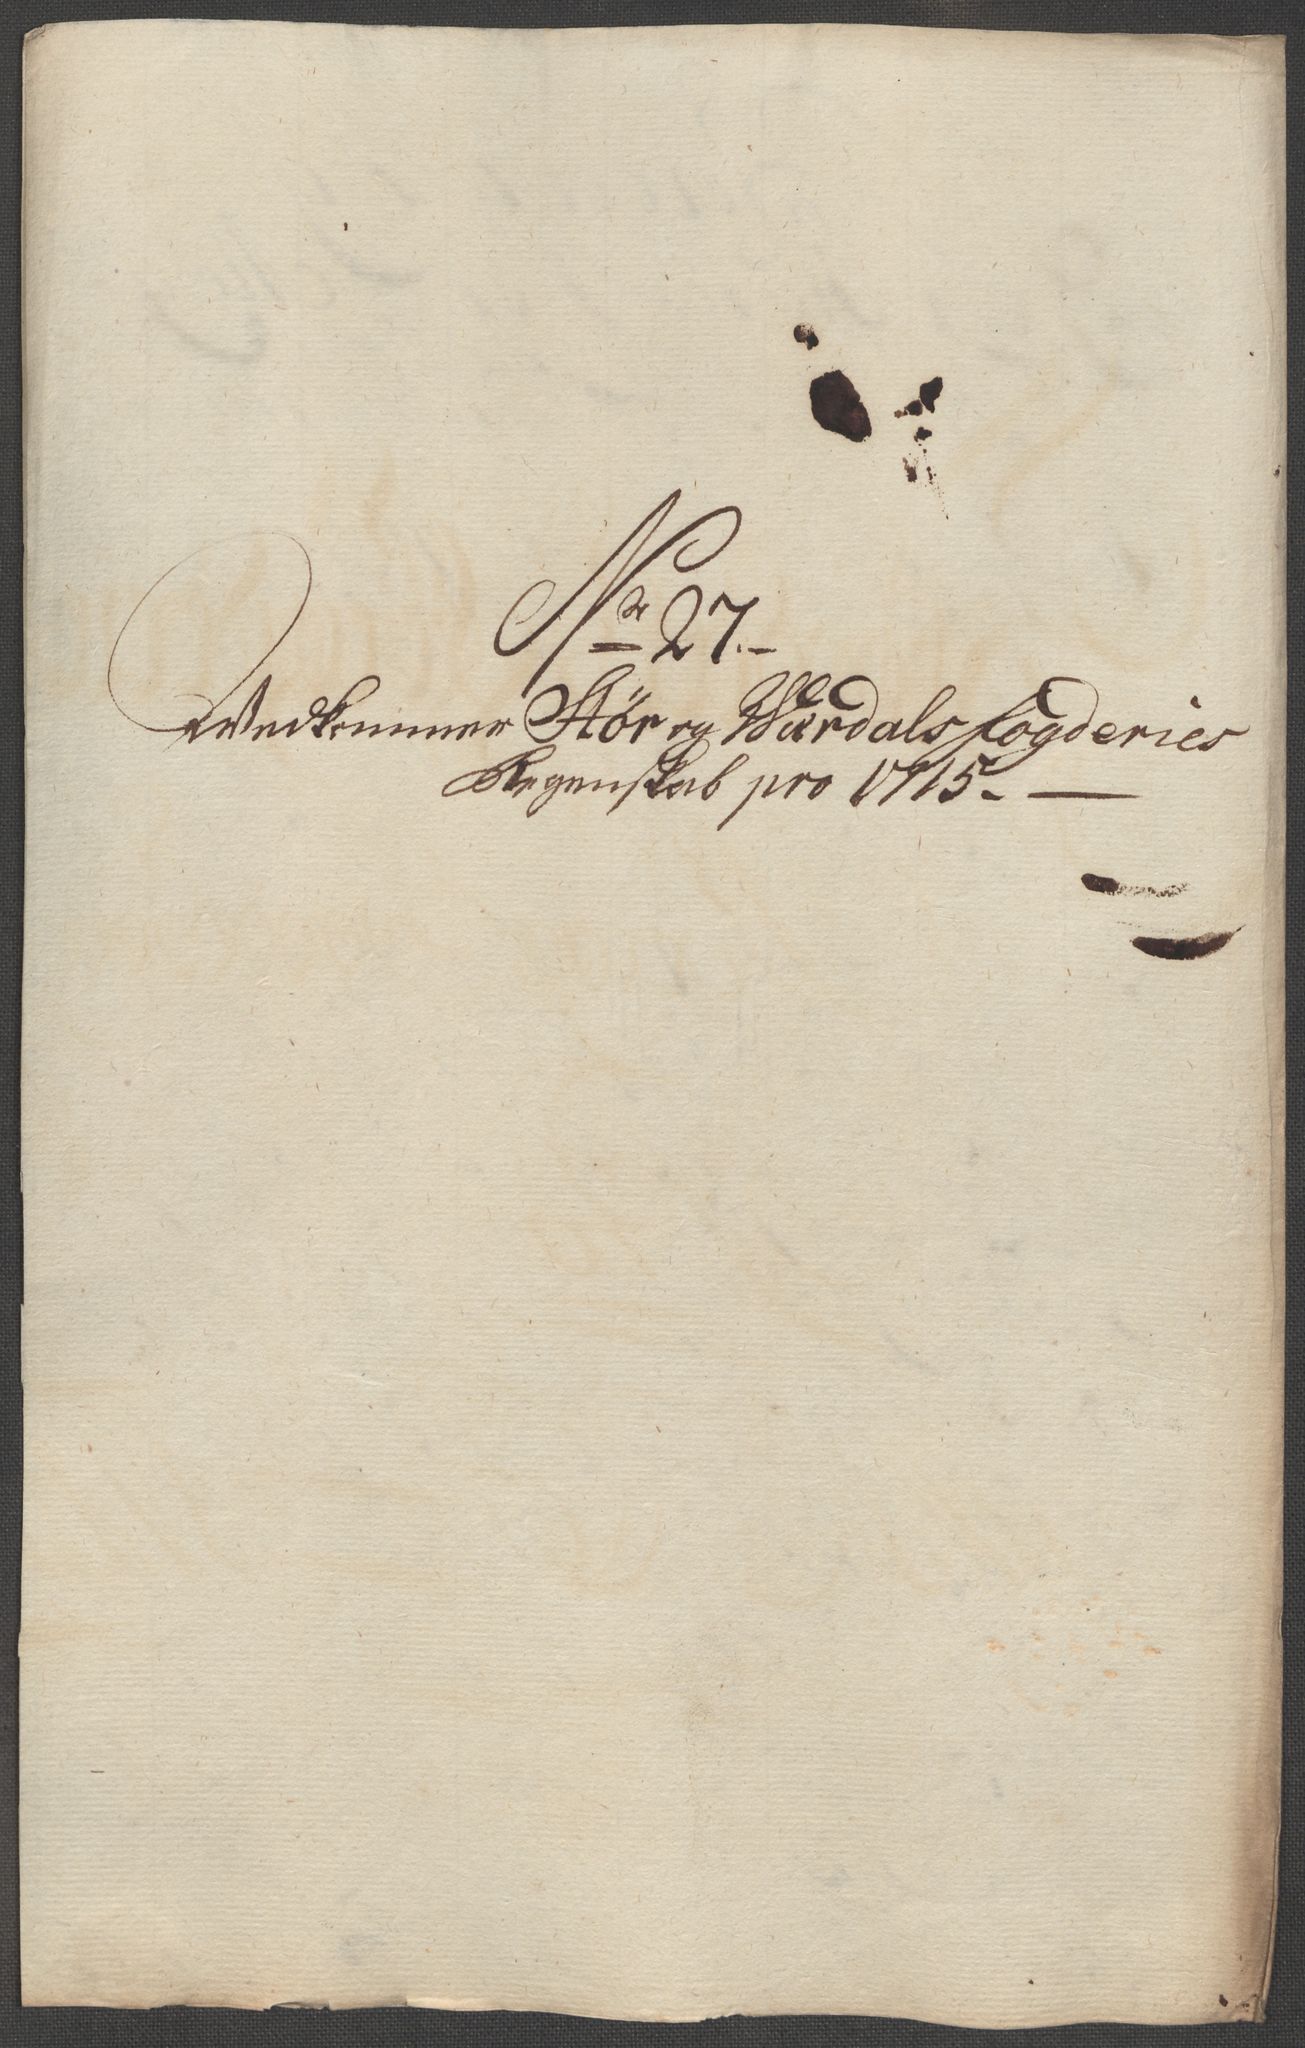 No 27.
Vedkommer Stør og Værdals fogderies
Regenskab pro 1715.